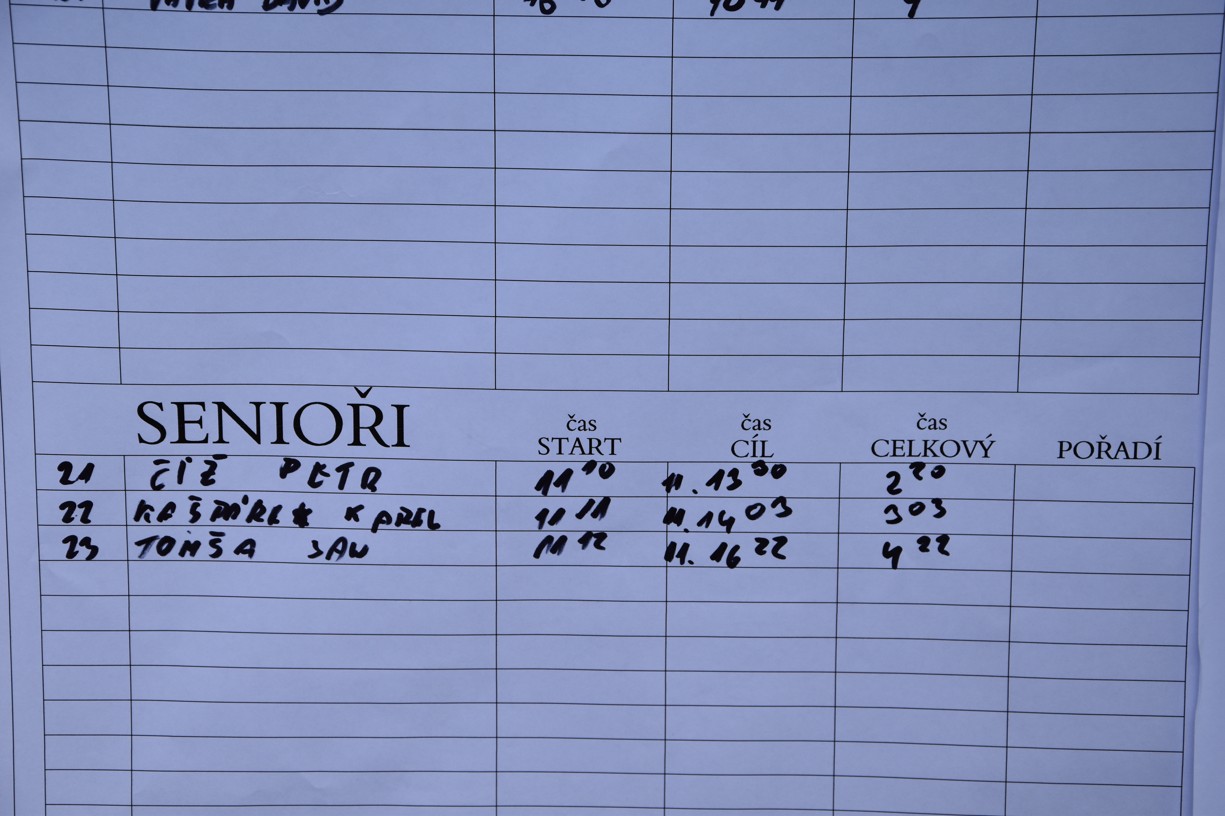 DAVID
SENIOŘI čas START čas CÍL čas CELKOVÝ POŘADÍ
21 ČÍŽ PETR 11 10 11.13 30 2 20
22 KAŠPÁREK KAREL 11 11 11.14 03 3 03
23 TOMŠA JAN 11 12 11.16 22 4 22